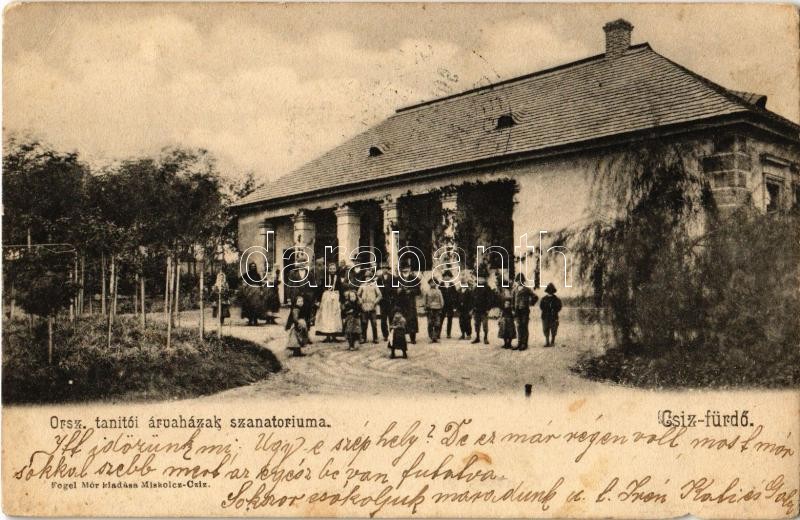 darabanth
Orsz. tanitói árvaházak szanatoriuma.
Csiz-fürdő.
Itt időzünk mi. Ugy e szép hely? De ez már régen volt, most már
sokkal szebb mert az egész be van futatva.
Fogel Mór kiadása Miskolcz-Csiz.
Sokszor csókoljuk maradunk a. l. Irén